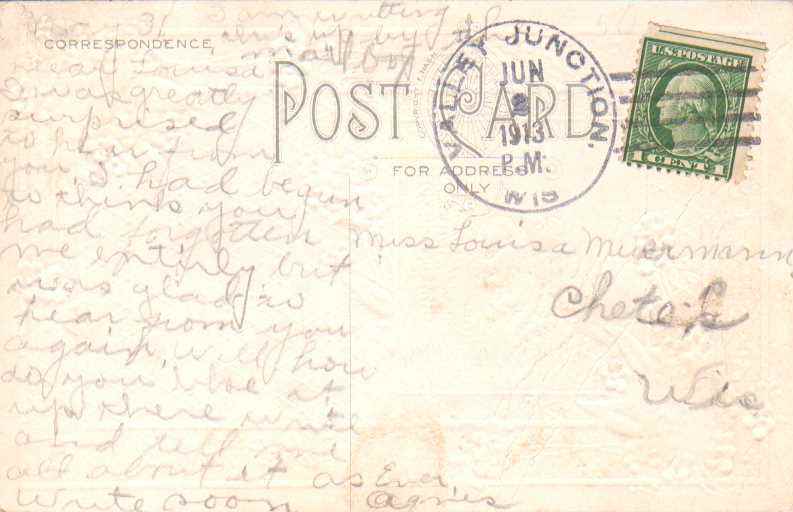 I am writing
this up by the
mail box
CORRESPONDENCE
Dear Louisa
I was greatly
surprised
to hear from
you, I had begun
to think you
had forgotten
me entirly but
was glad to
hear from you
again, will how
do you like it
up there write
and tell me
all about it as Ever
write soon Agnes
POST CARD
FOR ADDRESS
ONLY
VALLEY JUNCTION,
JUN
2
1913
P.M.
WIS
U.S. POSTAGE
1 CENT 1
Miss Louisa Meuermann
Chetek
Wis